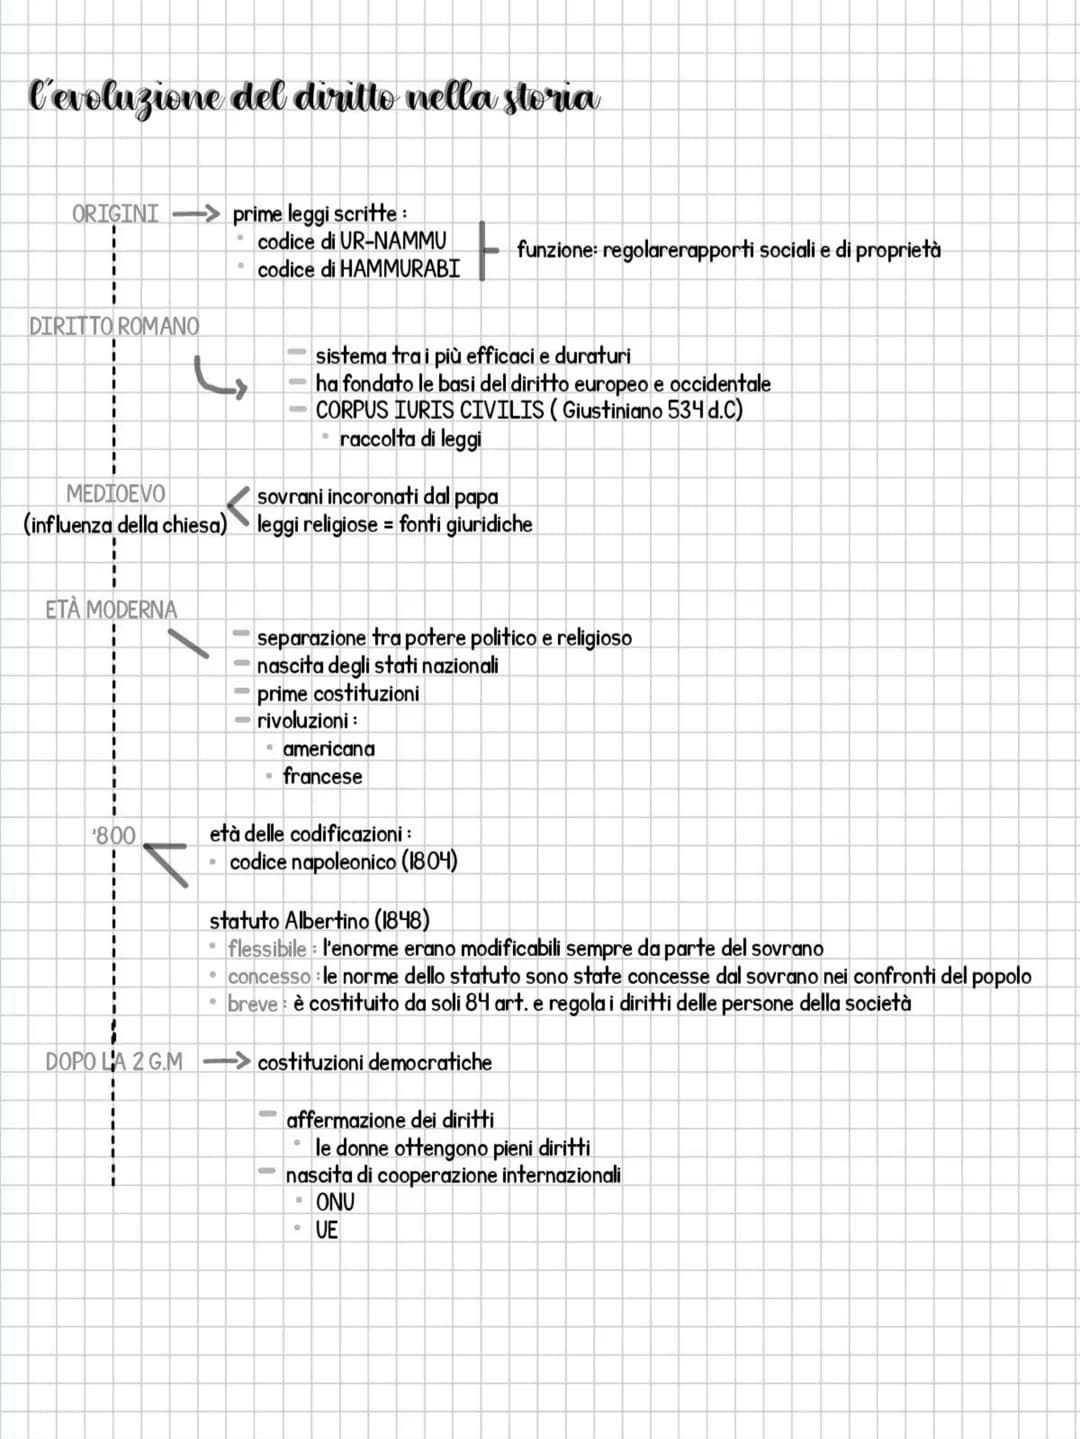 l'evoluzione del diritto nella storia
ORIGINI → prime leggi scritte :
• codice di UR-NAMMU
• codice di HAMMURABI
funzione: regolarerapporti sociali e di proprietà
DIRITTO ROMANO
– sistema tra i più efficaci e duraturi
– ha fondato le basi del diritto europeo e occidentale
– CORPUS IURIS CIVILIS ( Giustiniano 534 d.C)
• raccolta di leggi
MEDIOEVO
(influenza della chiesa)
sovrani incoronati dal papa
leggi religiose = fonti giuridiche
ETÀ MODERNA
– separazione tra potere politico e religioso
– nascita degli stati nazionali
– prime costituzioni
– rivoluzioni :
• americana
• francese
'800
età delle codificazioni :
• codice napoleonico (1804)
statuto Albertino (1848)
• flessibile : l'enorme erano modificabili sempre da parte del sovrano
• concesso : le norme dello statuto sono state concesse dal sovrano nei confronti del popolo
• breve : è costituito da soli 84 art. e regola i diritti delle persone della società
DOPO LA 2 G.M → costituzioni democratiche
– affermazione dei diritti
• le donne ottengono pieni diritti
– nascita di cooperazione internazionali
• ONU
• UE